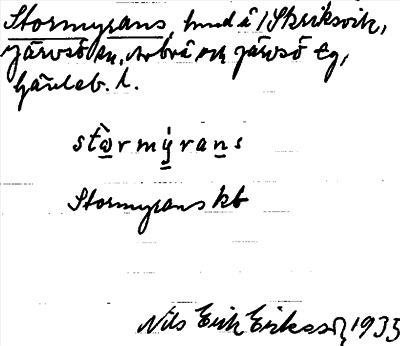 Stormyrans, hund å / Skriksvik,
Järvsö sn, Arbrå och Järvsö tg,
Gävleb. l.
stɷ̀rmýrans
Stormyrans kb
Nils Erik Eriksson, 1935